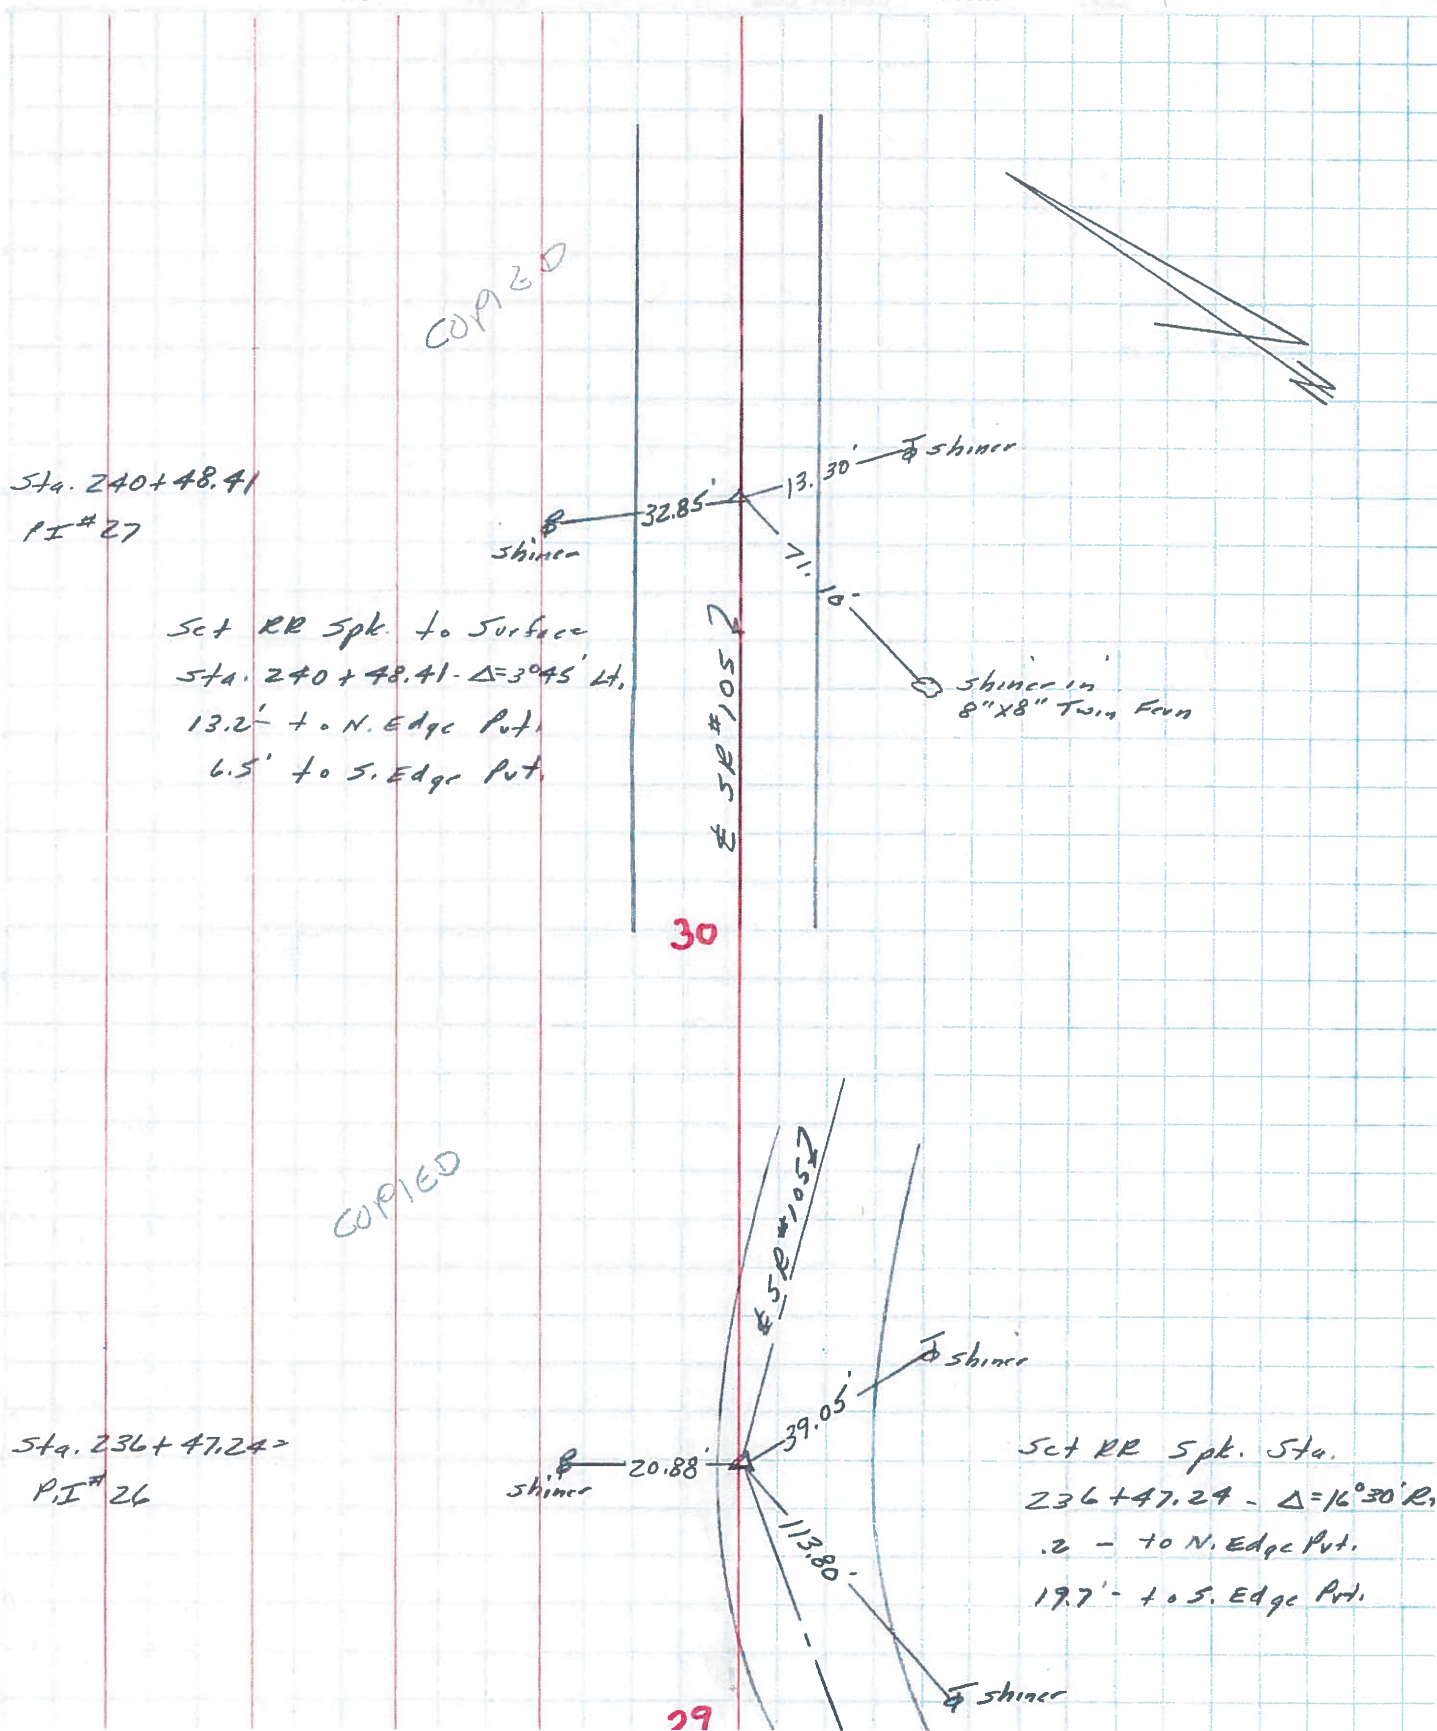 COPIED
Sta. 240+48.41
PI #27
32.85'
13.30'
shiner
shiner
71.10
shiner in
8"x8" Twin
Set RR Spk. to Surface
Sta. 240+48.41 - Δ=3°45' Lt.
13.2' - to N. Edge Pvt.
6.5' to S. Edge Pvt.
℄ SR #105
30
COPIED
℄ SR #105
Sta. 236+47.24=
P.I #26
20.88'
39.05'
shiner
shiner
113.80
shiner
Set RR Spk. Sta.
236+47.24 - Δ=16°30' R
.2 - to N. Edge Pvt.
19.7' - to S. Edge Pvt.
29